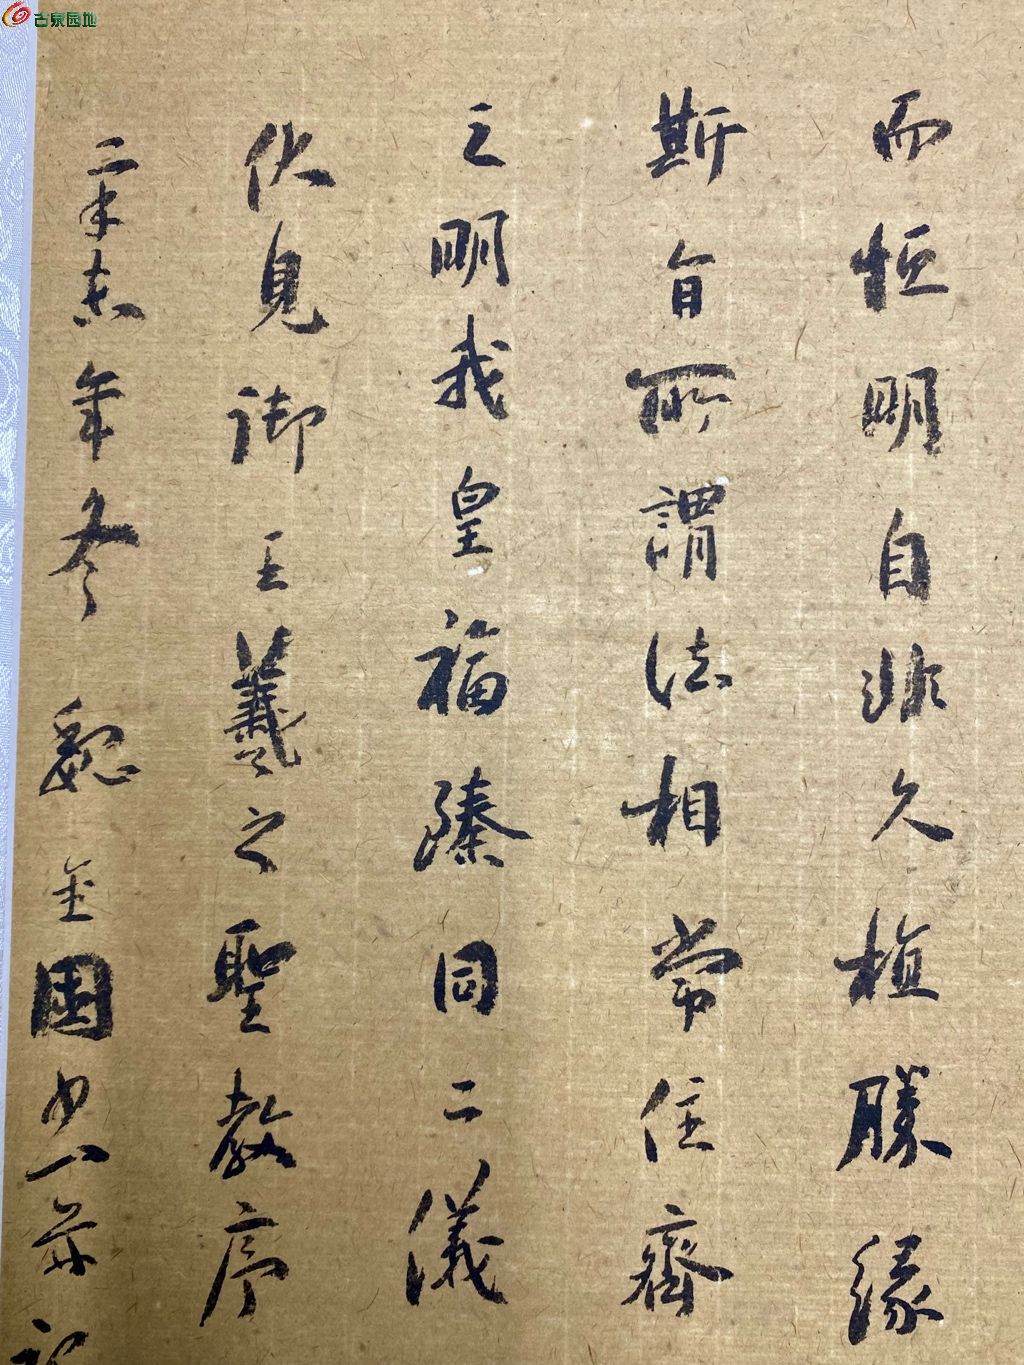 古泉园地
而恒明自非久植勝緣
斯旨所謂法相常住齊
之明我皇福臻同二儀
伏見御王羲之聖教序
年冬魏金國